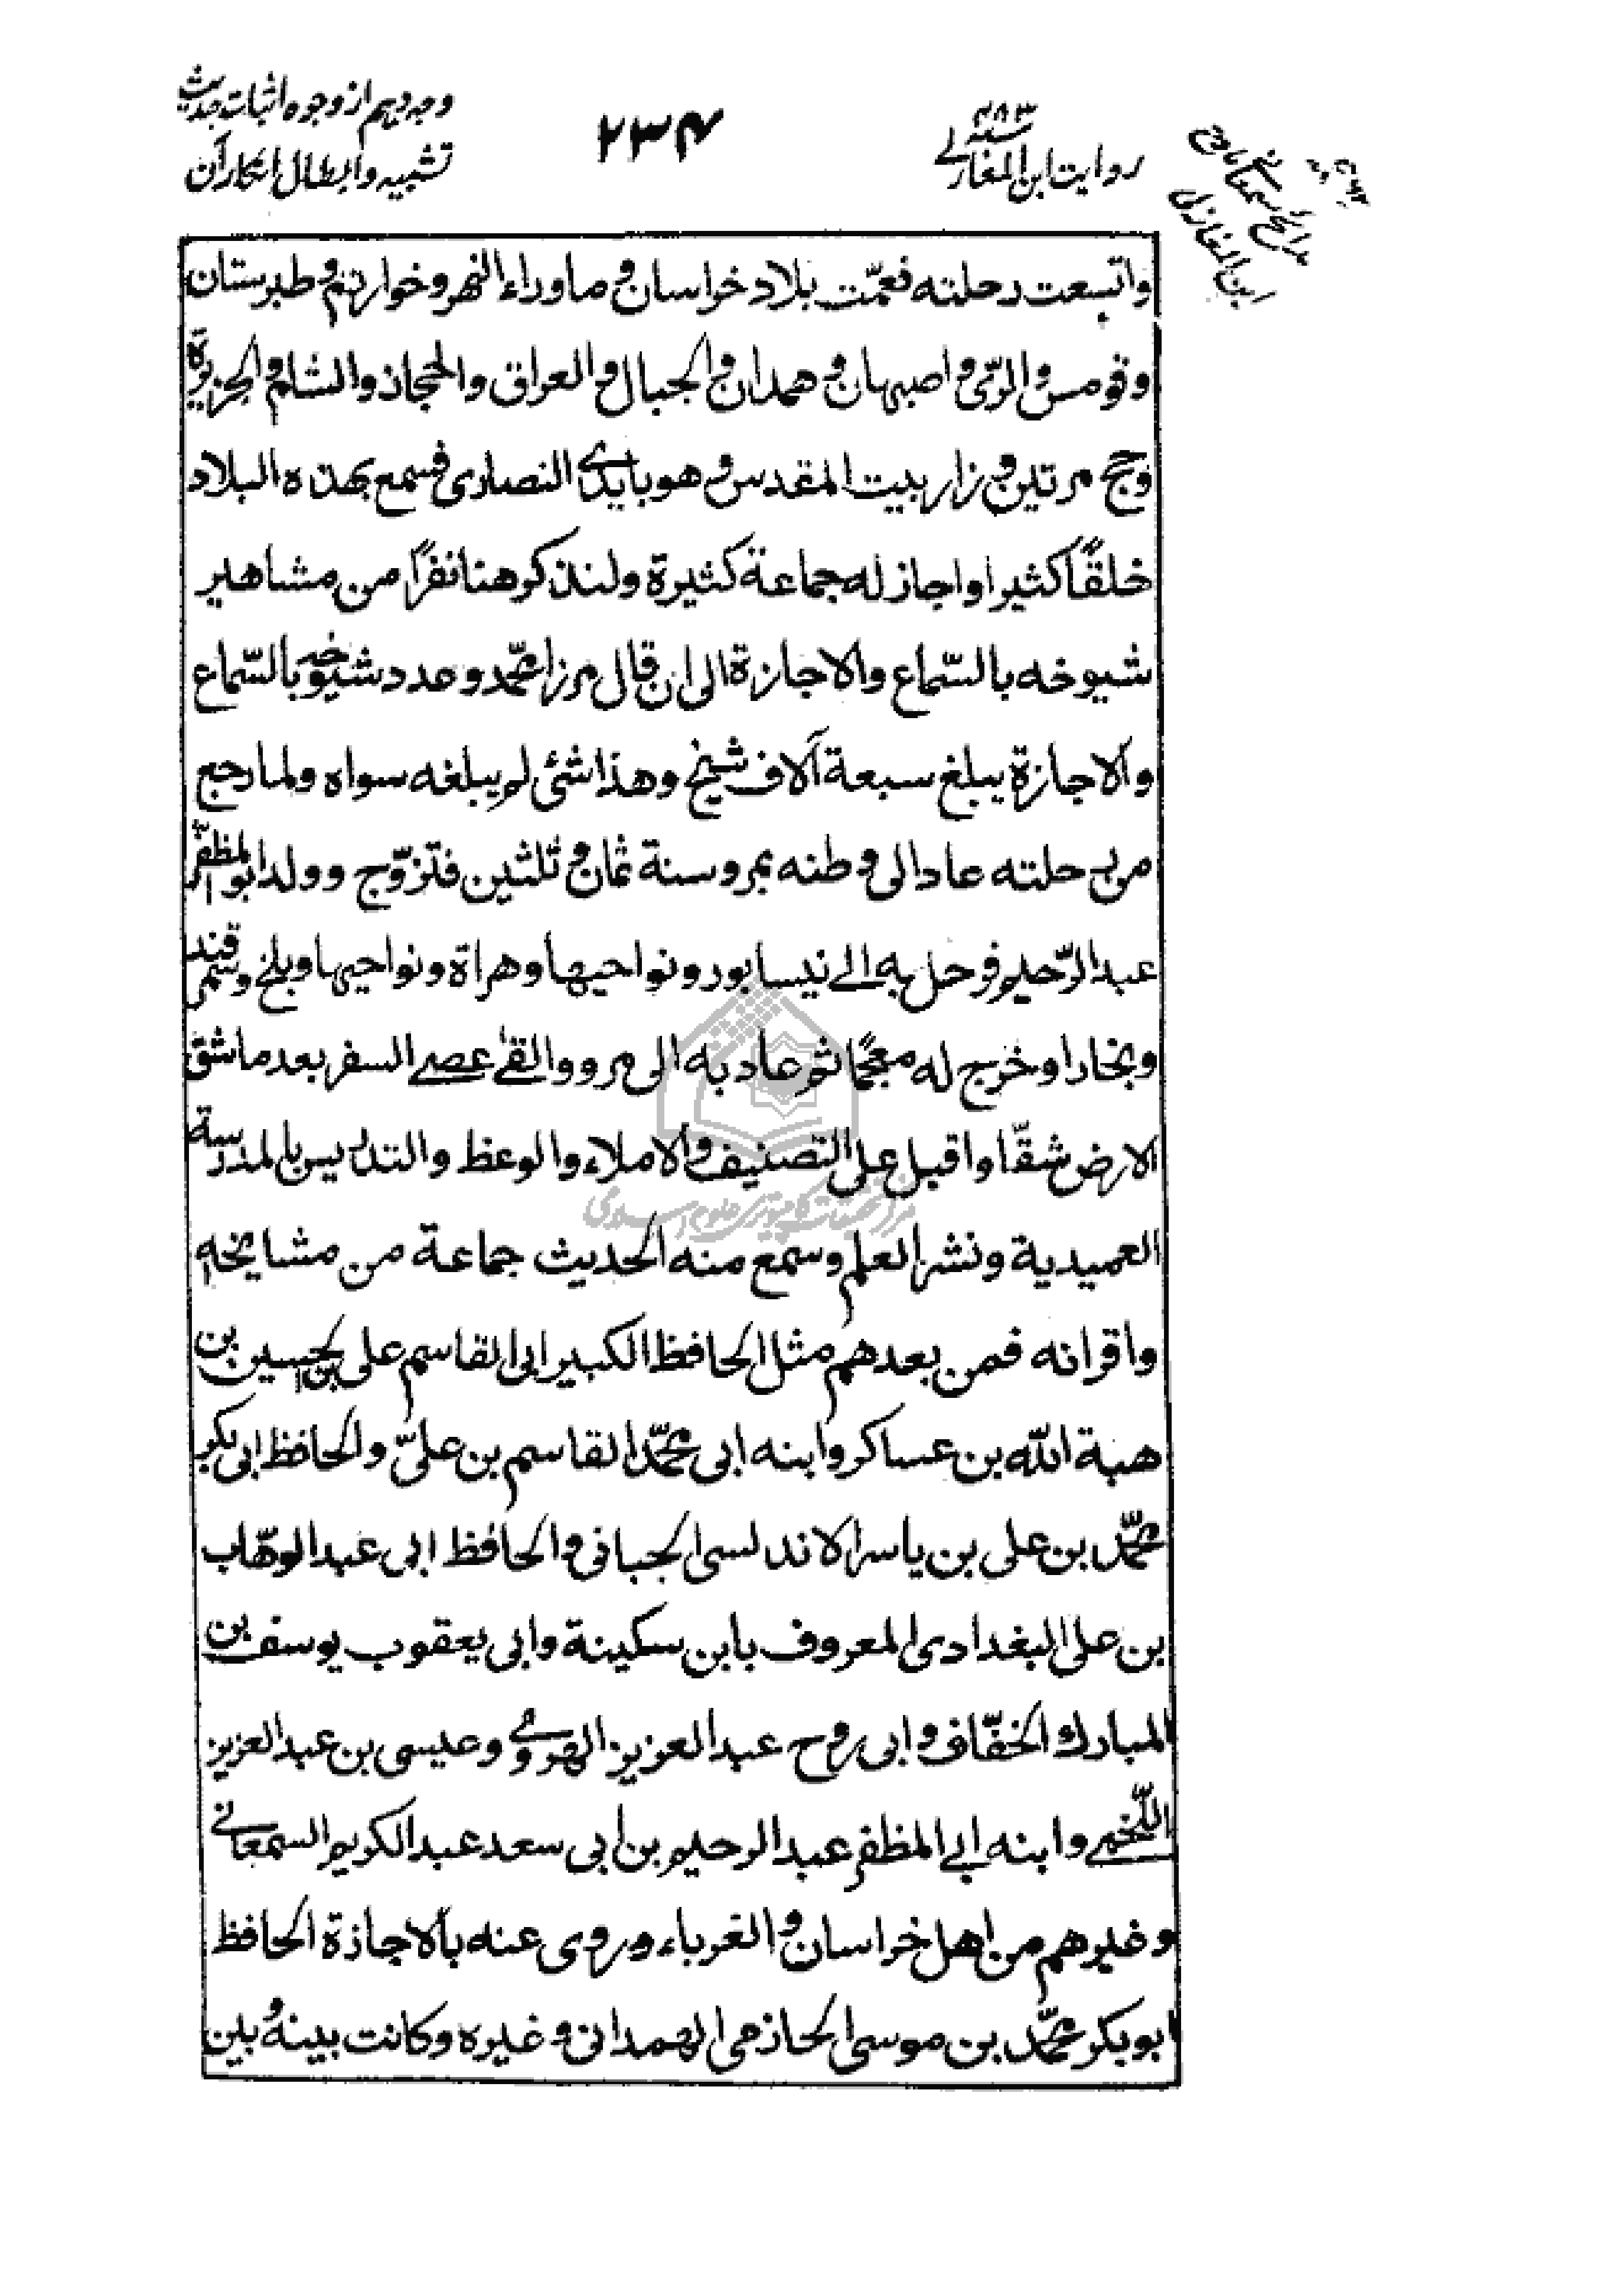 ۴۸۳ سنه
روایت ابن المغازلی
۲۳۴
وجه دهم از وجوه اثبات حدیث
تشبیه و ابطال انکار آن
مدائح سمعانی مادح
ابن المغازلی
واتسعت رحلته فعمّت بلاد خراسان و ماوراء النهر و خوارزم و طبرستان
وقومس و الرّی و اصبهان و همدان و الجبال و العراق والحجاز والشام و الجزیرة
وحج مرتین و زار بیت المقدس و هو بایدی النصاری فسمع بهذه البلاد
خلقًا کثیرا و اجاز له جماعة کثیرة ولنذکر هنا نفرًا من مشاهیر
شیوخه بالسّماع والاجازة الی ان قال مرزا محمّد وعدد شیوخه بالسّماع
والاجازة یبلغ سبعة آلاف شیخ وهذا شئ لم یبلغه سواه ولما رجع
من رحلته عاد الی وطنه بمرو سنة ثمان و ثلثین فتزوّج وولد ابو المظفّر
عبد الرّحیم فرحل به الی نیسابور و نواحیها و هراة و نواحیها و بلخ و سمرقند
وبخارا و خرج له معجمًا ثم عاد به الی مرو والقی عصی السفر بعد ما شق
الارض شقّا و اقبل علی التصنیف و الاملاء والوعظ والتدریس بالمدرسة
العمیدیة ونشر العلم وسمع منه الحدیث جماعة من مشایخه
واقرانه فمن بعدهم مثل الحافظ الکبیر ابی القاسم علی بن الحسین بن
هبة اللّه بن عساکر وابنه ابی محمّد القاسم بن علیّ والحافظ ابی بکر
محمّد بن علی بن یاسر الاندلسی الجبانی والحافظ ابی عبد الوهّاب
بن علی البغدادی المعروف بابن سکینة وابی یعقوب یوسف بن
المبارک الخفّاف و ابی روح عبد العزیز الهروی وعیسی بن عبد العزیز
اللّخمی وابنه ابی المظفر عبد الرحیم بن ابی سعد عبد الکریم السمعانی
وغیرهم من اهل خراسان و الغرباء وروی عنه بالاجازة الحافظ
ابو بکر محمّد بن موسی الحازمی الهمدانی وغیره وکانت بینه و بین
مرکز تحقیقات کامپیوتری علوم اسلامی